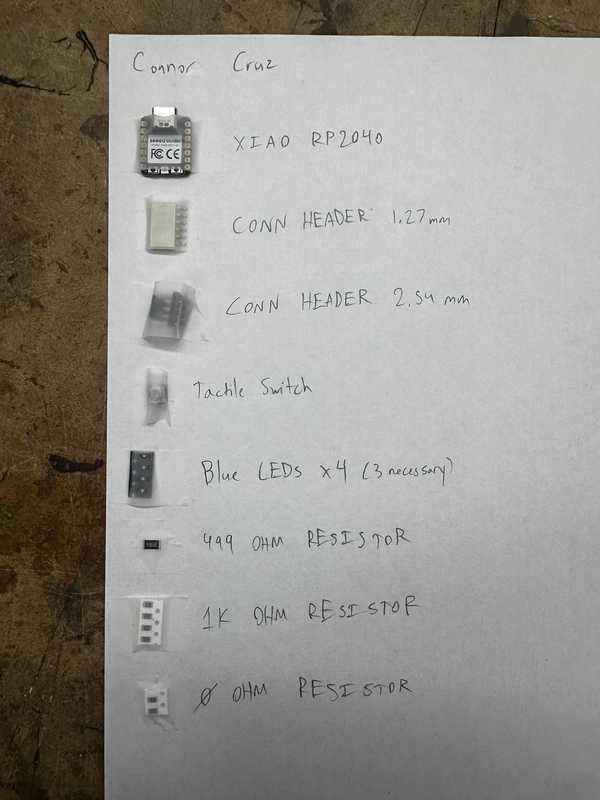 Connor Cruz
XIAO RP2040
seeed studio
FC CE
CONN HEADER 1.27mm
CONN HEADER 2.54 mm
Tactile Switch
Blue LEDs x4 (3 necessary)
499 OHM RESISTOR
1K OHM RESISTOR
Ø OHM RESISTOR